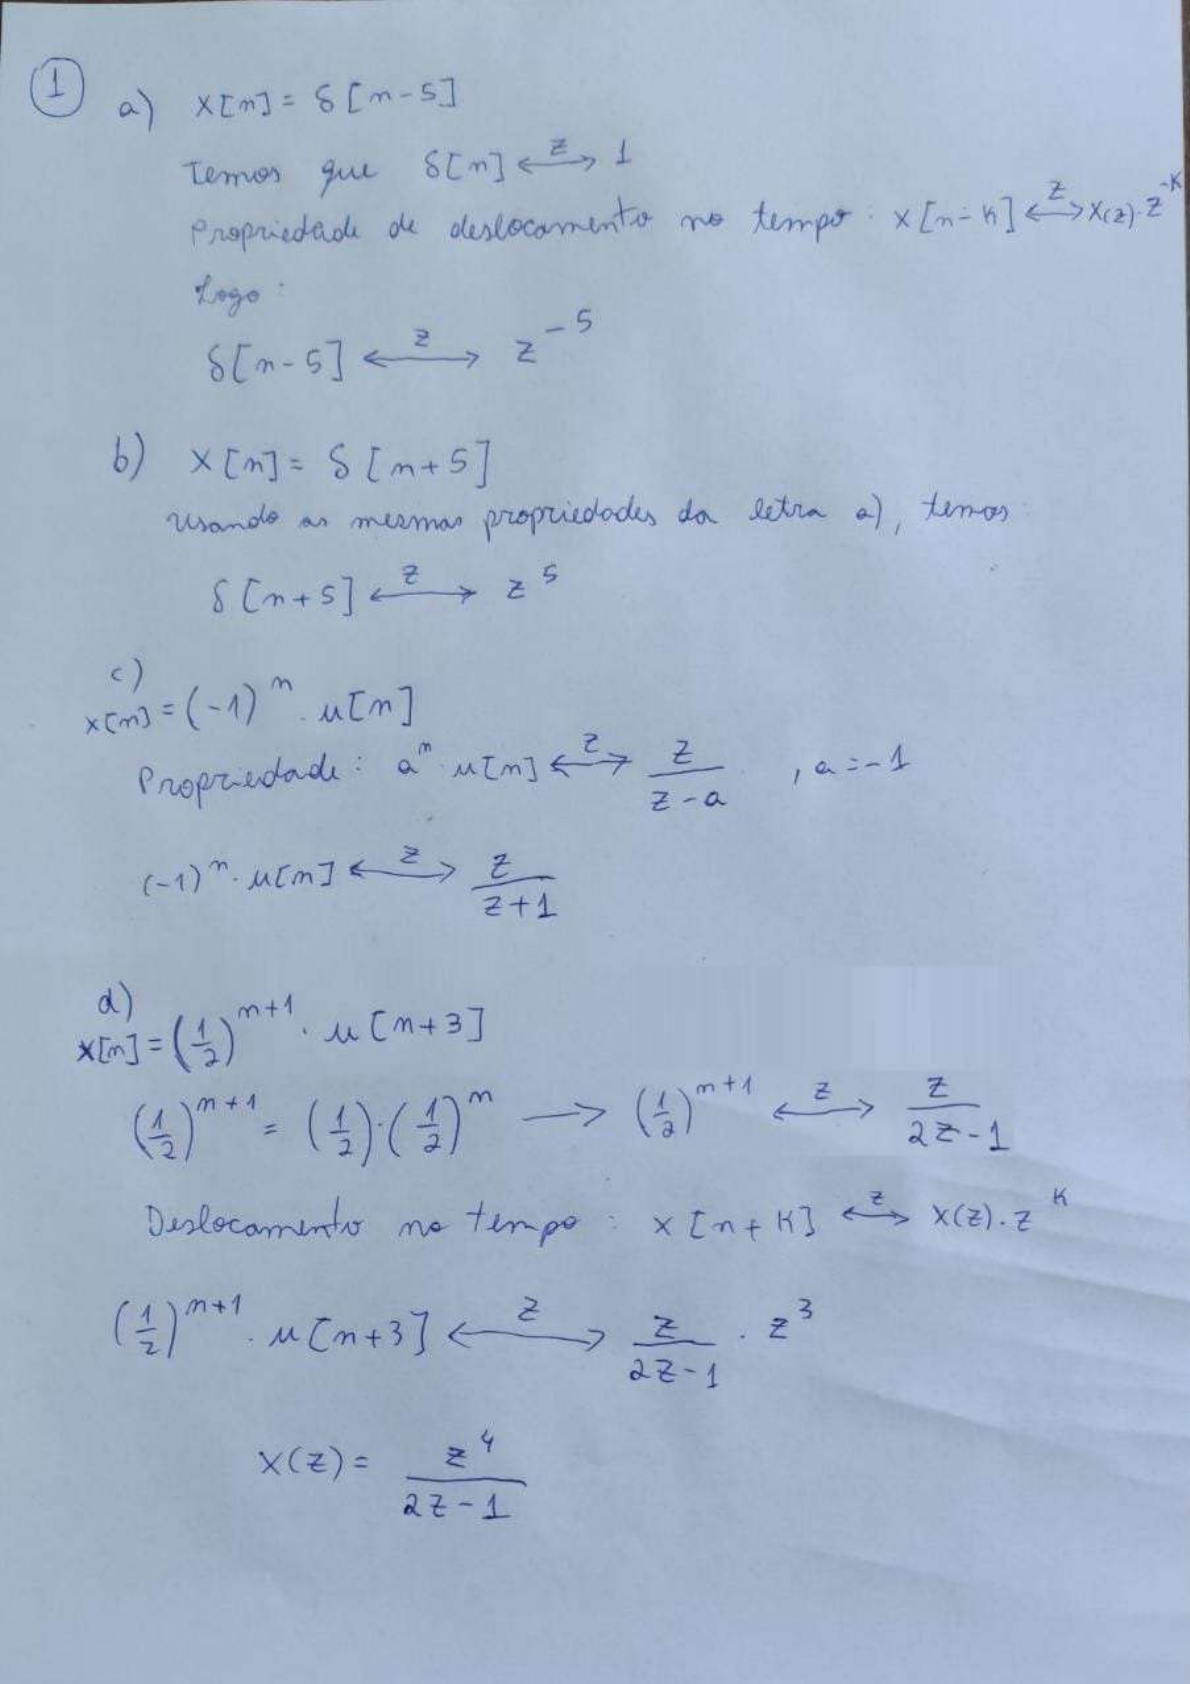 1
a) x[n] = δ[n-5]
Temos que δ[n] ⟷z 1
Propriedade de deslocamento no tempo: x[n-k] ⟷z X(z)·z^-k
Logo:
δ[n-5] ⟷z z^-5
b) x[n] = δ[n+5]
Usando as mesmas propriedades da letra a), temos:
δ[n+5] ⟷z z^5
c)
x[n] = (-1)^n · u[n]
Propriedade: a^n · u[n] ⟷z z/(z-a) , a=-1
(-1)^n · u[n] ⟷z z/(z+1)
d)
x[n] = (1/2)^n+1 · u[n+3]
(1/2)^n+1 = (1/2)·(1/2)^n → (1/2)^n+1 ⟷z z/(2z-1)
Deslocamento no tempo: x[n+k] ⟷z X(z)·z^k
(1/2)^n+1 · u[n+3] ⟷z z/(2z-1) · z^3
X(z) = z^4/(2z-1)